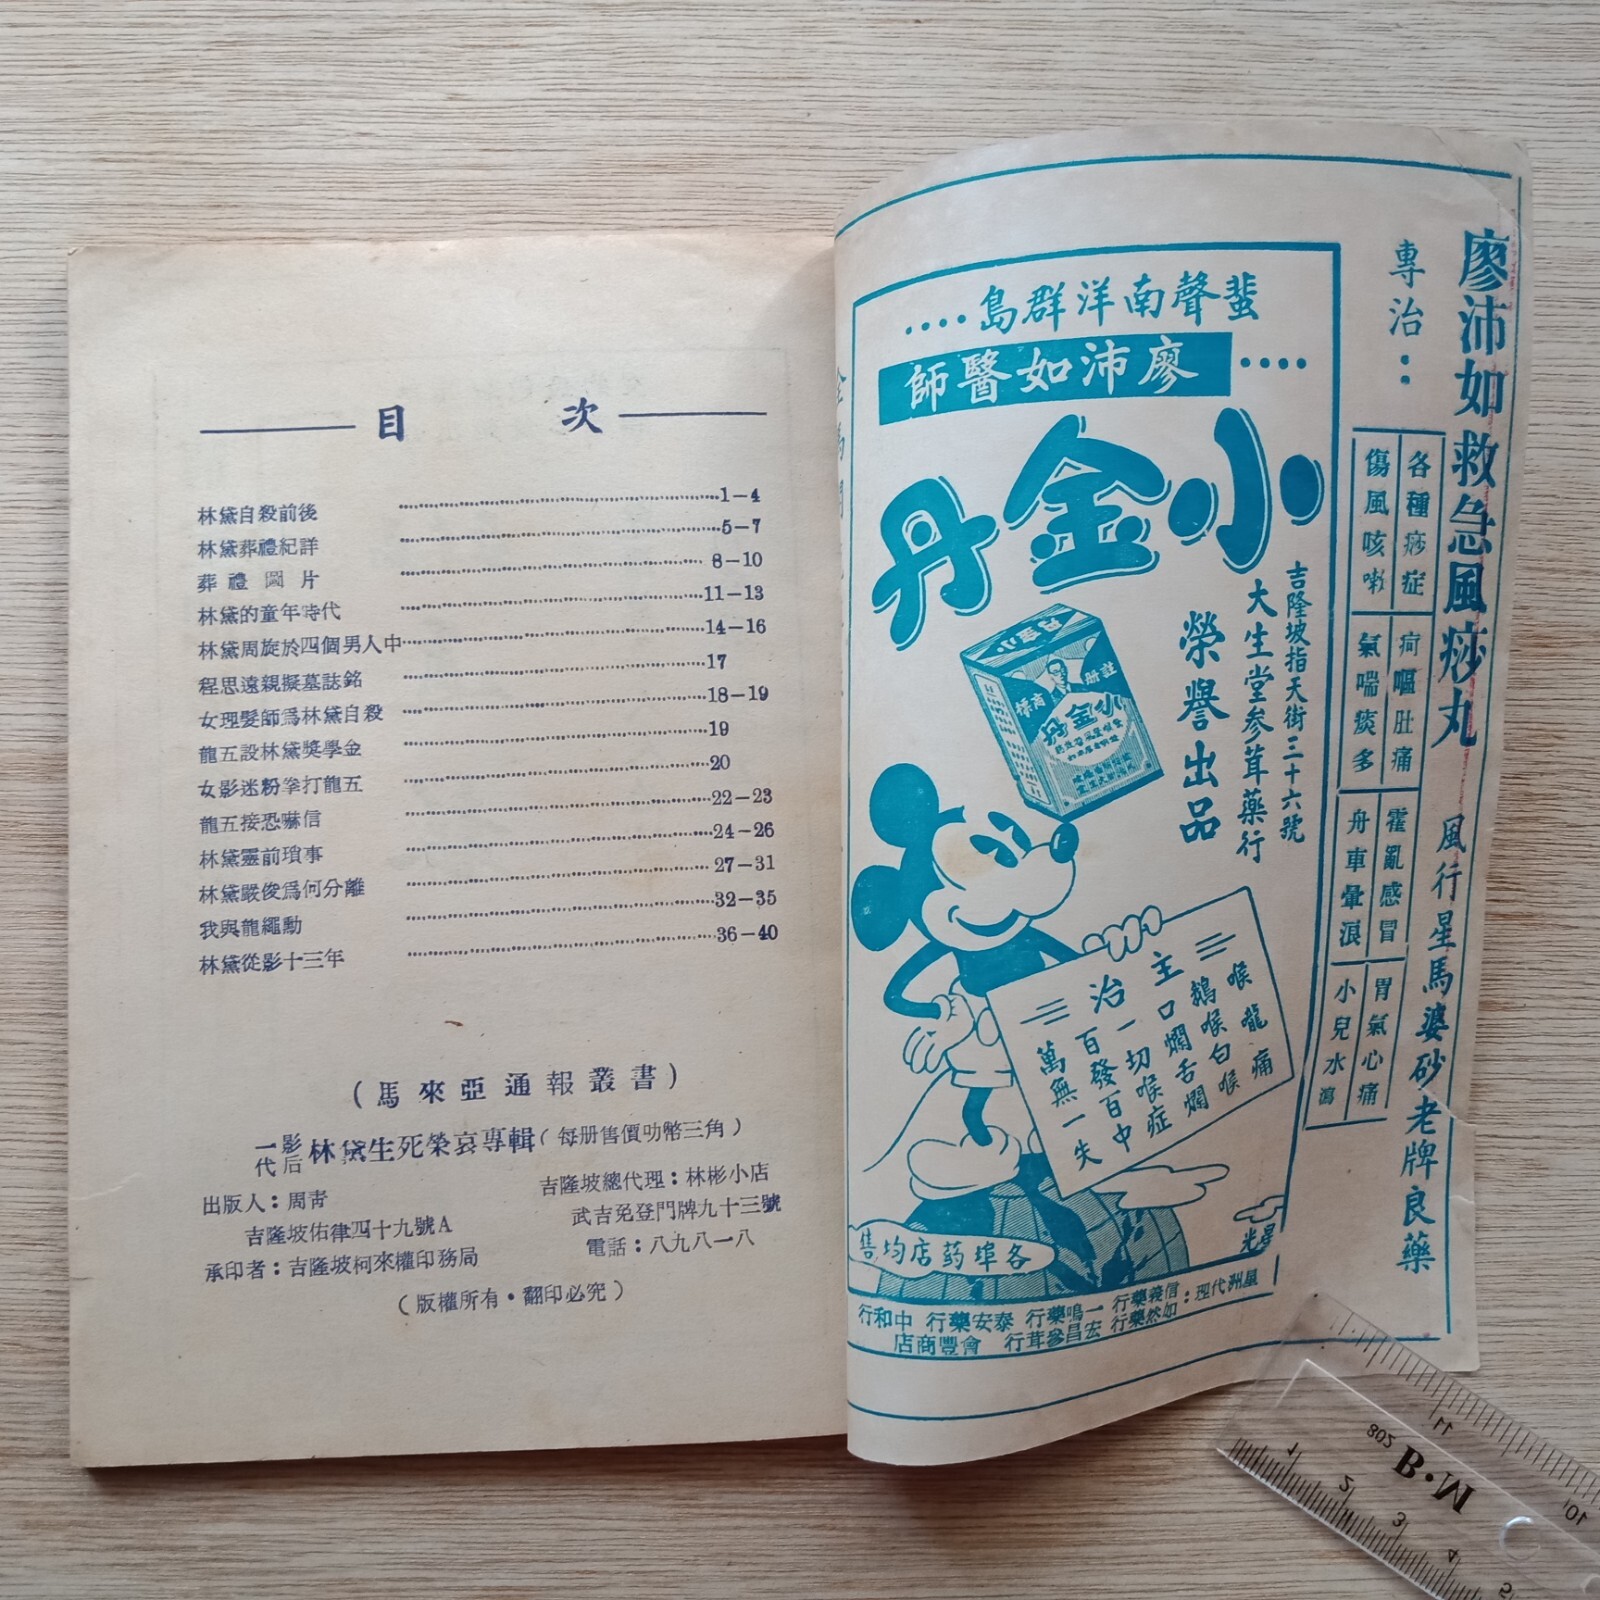 目 次
林黛自殺前後 1-4
林黛葬禮紀詳 5-7
葬禮圖片 8-10
林黛的童年時代 11-13
林黛周旋於四個男人中 14-16
程思遠親擬墓誌銘 17
女理髮師爲林黛自殺 18-19
龍五設林黛獎學金 19
女影迷粉拳打龍五 20
龍五接恐嚇信 22-23
林黛靈前瑣事 24-26
林黛嚴俊爲何分離 27-31
我與龍繩勳 32-35
林黛從影十三年 36-40
（馬來亞通報叢書）
一代影后 林黛生死榮哀專輯（每册售價叻幣三角）
出版人：周靑
吉隆坡佑律四十九號A
承印者：吉隆坡柯來權印務局
吉隆坡總代理：林彬小店
武吉免登門牌九十三號
電話：八九八一八
（版權所有·翻印必究）
廖沛如救急風痧丸
風行星馬婆砂老牌良藥
專治：
各種痧症
傷風咳嗽
疴嘔肚痛
氣喘痰多
霍亂感冒
舟車暈浪
胃氣心痛
小兒水瀉
蜚聲南洋群島····
····廖沛如醫師
小金丹
吉隆坡指天街三十六號
大生堂參茸藥行
榮譽出品
註册
商標
小金丹
主治
喉龍痛
鵝喉白喉
口爛舌爛
一切喉症
百發百中
萬無一失
各埠葯店均售
星光
星洲代理：信義藥行 如然藥行 一鳴藥行 宏昌參茸行 泰安藥行 會豐商店 中和行
B·M
802
11
10
1
2
3
4
5